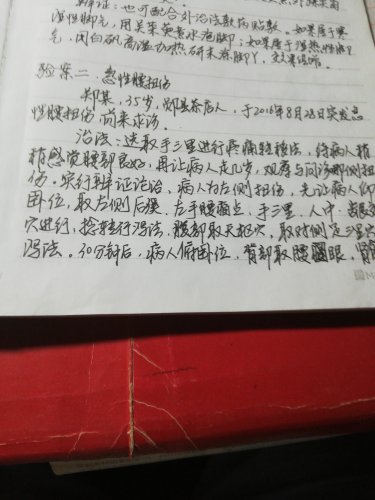 辩证：也可配合外治法敷药贴敷。如果属于寒
湿性脚气，用吴茱萸煮水泡脚；如果属于湿热性脚
气，用白矾高温加热研末搽脚丫，交效很好。
验案二．急性腰扭伤
郑某，35岁，郧县茶店人，于2016年8月28日突发急
性腰扭伤 前来求诊。
治法：选取手三里进行疼痛转移法，待病人稍
稍感觉腰部良好，再让病人走几步，观察与问诊哪侧扭
伤。实行辩证论治，病人为左侧扭伤，先让病人仰
卧位，取左侧后溪、左手腰痛点、手三里、人中、
穴进行，捻转行泻法，腹部取天枢穴，取对侧足三里穴
泻法。30分钟后，病人俯卧位，背部取腰眼、肾